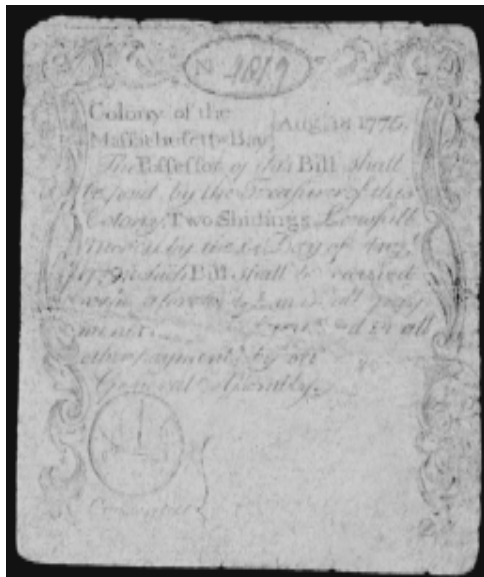 N 4819
Colony of the
Massachusetts Bay Aug. 18 1775.
The Possessor of this Bill shall
be paid by the Treasurer of this
Colony, Two Shillings Lawfull
Money by the Day of Aug.
which Bill shall be received
all pay
ments and in all
other payments by
General Assembly.
Committee